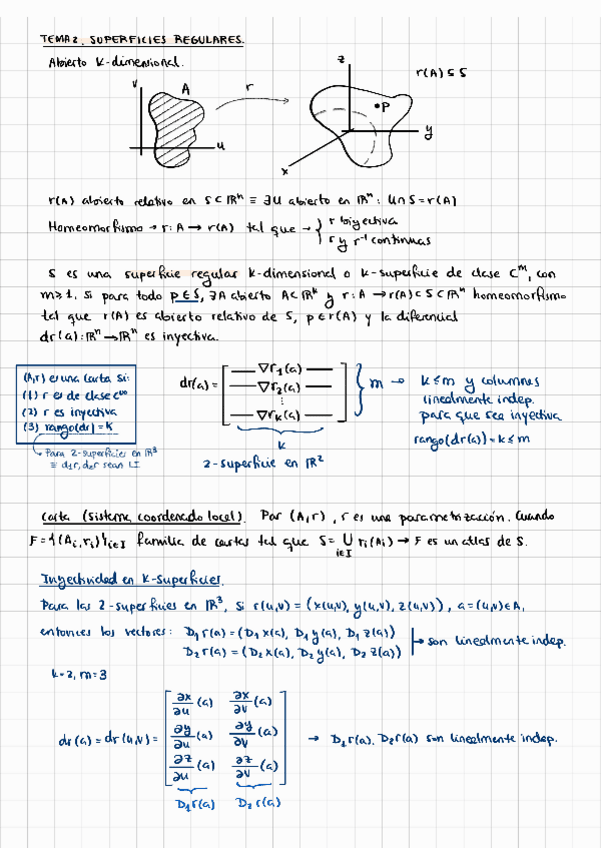 TEMA 2. SUPERFICIES REGULARES.
Abierto K-dimensional.
v
A
r
u
z
P
y
x
r(A) ⊆ S
r(A) abierto relativo en S ⊂ ℝⁿ ≡ ∃U abierto en ℝⁿ: U∩S = r(A)
Homeomorfismo → r: A → r(A) tal que → { r biyectiva
r y r⁻¹ continuas
S es una superficie regular K-dimensional o K-superficie de clase Cᵐ, con
m≥1, si para todo p∈S, ∃A abierto A⊂ℝᵏ y r: A → r(A) ⊂ S ⊂ ℝᵐ homeomorfismo
tal que r(A) es abierto relativo de S, p∈r(A) y la diferencial
dr(a): ℝⁿ → ℝⁿ es inyectiva.
(A,r) es una carta si:
(1) r es de clase Cᵐ
(2) r es inyectiva
(3) rango(dr) = K
↳ Para 2-superficies en ℝ³
≡ d₁r, d₂r sean LI.
dr(a) = [ — ∇r₁(a) —
— ∇r₂(a) —
⋮
— ∇rₖ(a) — ] } m → K≤m y columnas
linealmente indep.
para que sea inyectiva
rango(dr(a)) = k ≤ m
K
2-superficie en ℝ²
Carta (sistema coordenado local). Par (A,r), r es una parametrización. Cuando
F = {(Aᵢ,rᵢ)}i∈I familia de cartas tal que S = ∪ rᵢ(Aᵢ) → F es un atlas de S.
i∈I
Inyectividad en K-superficies.
Para las 2-superficies en ℝ³, si r(u,v) = (x(u,v), y(u,v), z(u,v)), a=(u,v)∈A,
entonces los vectores: D₁r(a) = (D₁x(a), D₁y(a), D₁z(a))
D₂r(a) = (D₂x(a), D₂y(a), D₂z(a)) → son linealmente indep.
k=2, m=3
dr(a) = dr(u,v) = [ ∂x/∂u (a) ∂x/∂v (a)
∂y/∂u (a) ∂y/∂v (a)
∂z/∂u (a) ∂z/∂v (a) ] → D₁r(a), D₂r(a) son linealmente indep.
D₁r(a) D₂r(a)